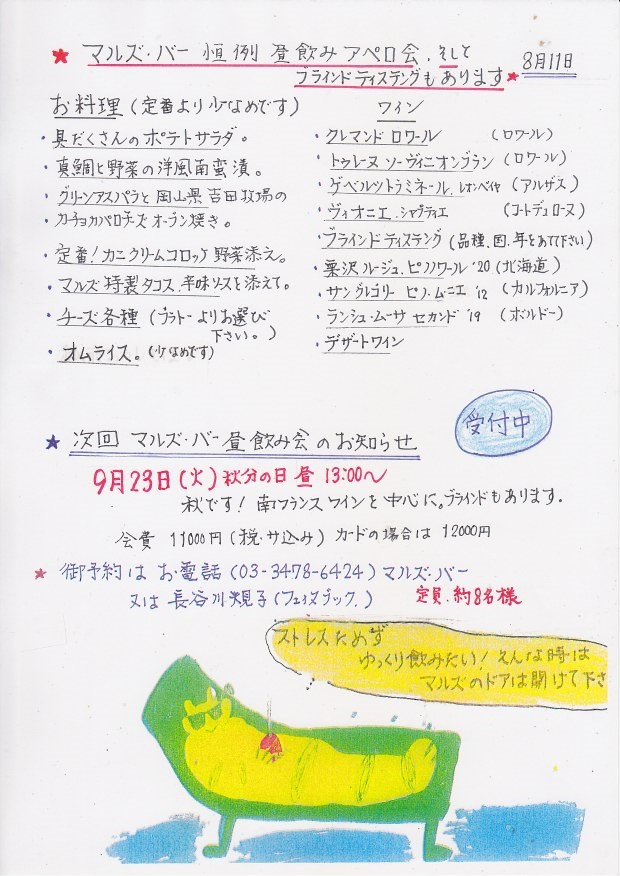 ★ マルズ・バー 恒例 昼飲みアペロ会、そして
ブラインドティステングもあります★
8月11日
お料理(定番より少なめです)
・具だくさんのポテトサラダ。
・真鯛と野菜の洋風南蛮漬。
・グリーンアスパラと岡山県吉田牧場の
カーチョカバロチーズオーブン焼き。
・定番!カニクリームコロッケ野菜添え。
・マルズ特製タコス、辛味ソースを添えて。
・チーズ各種(プラトーよりお選び
下さい。)
・オムライス。(少なめです)
ワイン
・クレマンド ロワール (ロワール)
・トゥレーヌ ソーヴィニオンブラン (ロワール)
・ゲベルツトラミネール、レオンベイヤ (アルザス)
・ヴィオニエ、シャプティエ (コートデュローヌ)
・ブラインドティステング (品種、国、年をあて下さい)
・栗沢ルージュ、ピノノワール '20 (北海道)
・サングレゴリー ピノ・ムニエ '12 (カルフォルニア)
・ランシュ・ムーサ セカンド '19 (ボルドー)
・デザートワイン
受付中
★ 次回 マルズ・バー昼飲み会のお知らせ
9月23日(火)秋分の日 昼 13:00〜
秋です!南フランスワインを中心に。ブラインドもあります。
会費 11000円(税・サ込み) カードの場合は 12000円
★ 御予約は お電話(03-3478-6424)マルズ・バー
又は 長谷川規子(フェイスブック)
定員、約8名様
ストレスためず
ゆっくり飲みたい!そんな時は
マルズのドアは開けて下さ